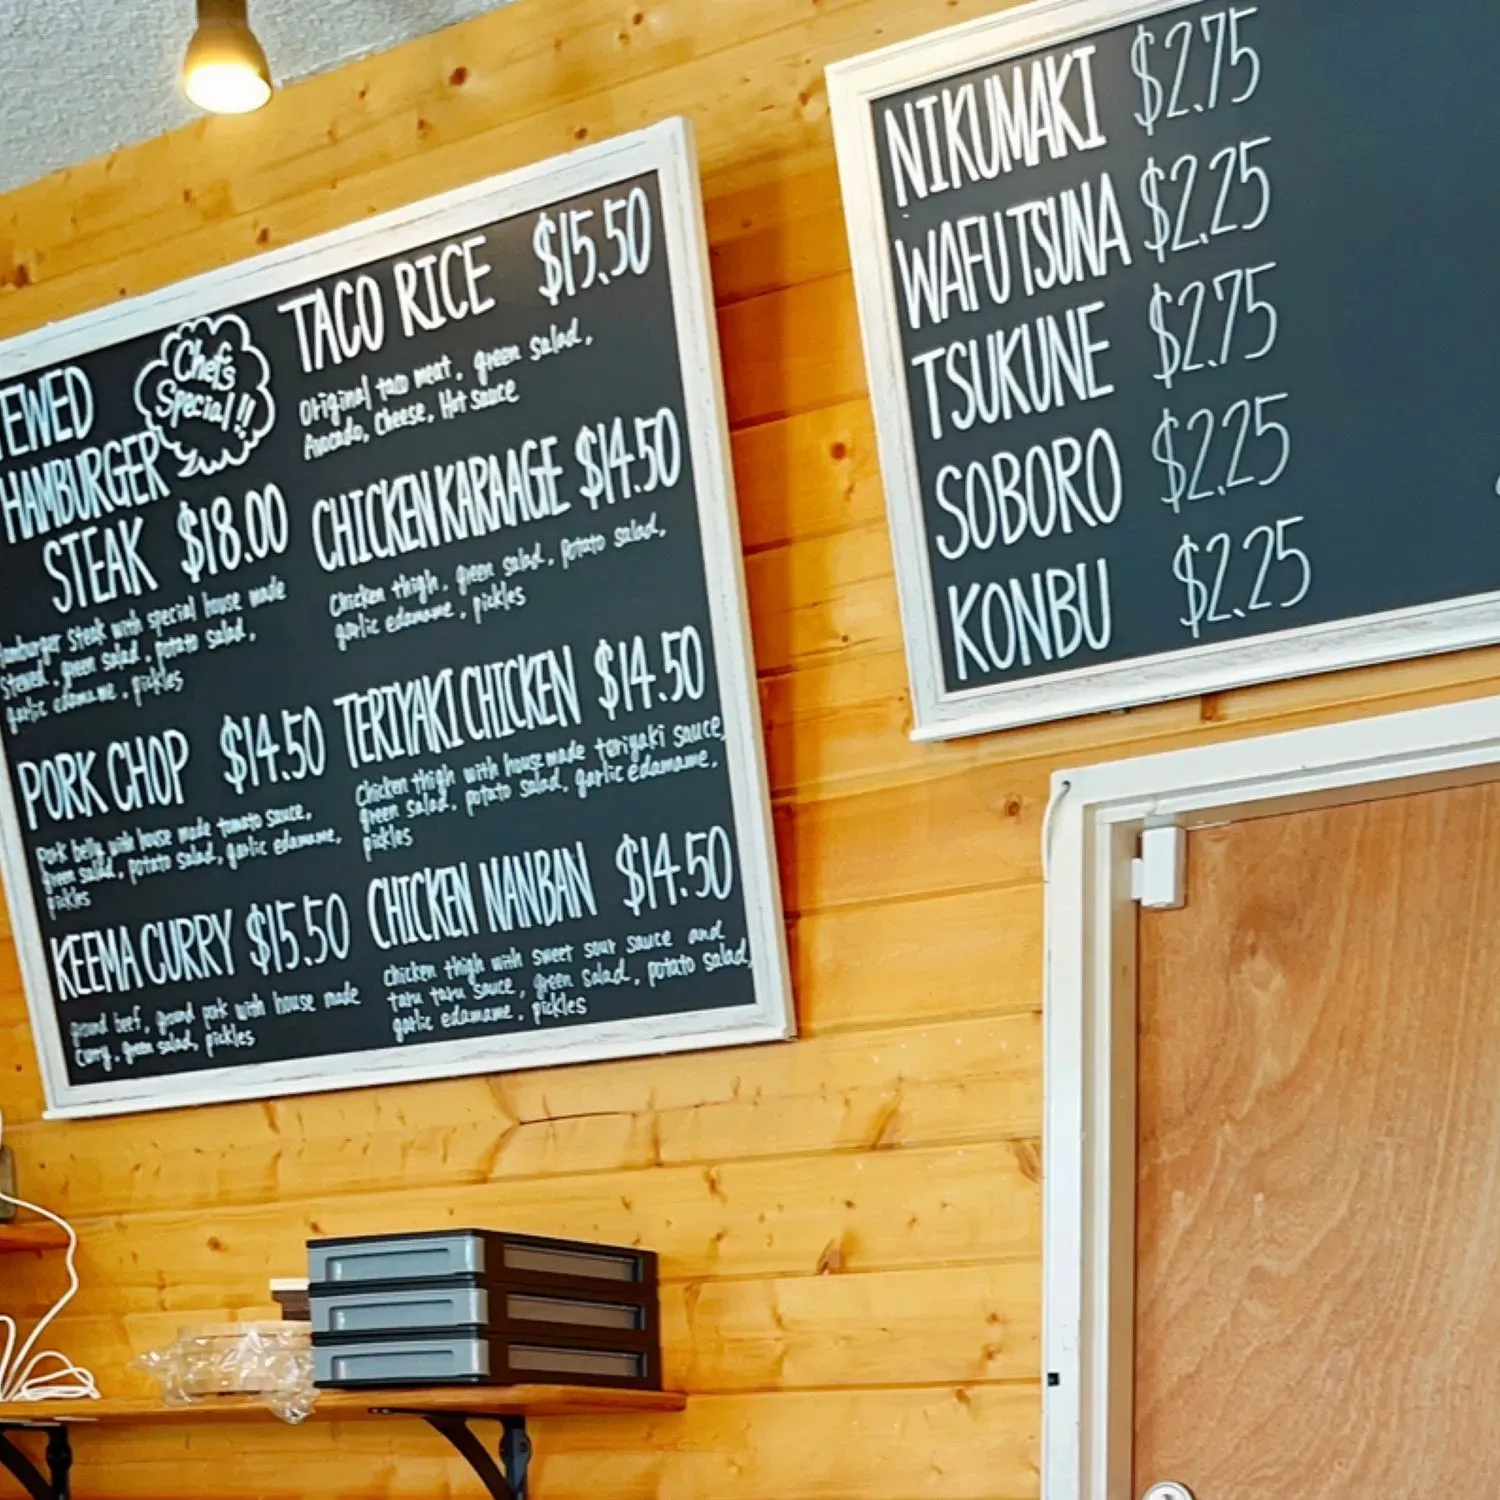 TEWED
HAMBURGER
STEAK $18.00
Chef's
Special!!
Hamburger steak with special house made
Stewed, green salad, potato salad,
garlic edamame, pickles
PORK CHOP $14.50
Pork belly with house made tomato sauce,
green salad, potato salad, garlic edamame,
pickles
KEEMA CURRY $15.50
ground beef, ground pork with house made
curry, green salad, pickles
TACO RICE $15.50
Original taco meat, green salad,
Avocado, Cheese, Hot sauce
CHICKEN KARAAGE $14.50
Chicken thigh, green salad, potato salad,
garlic edamame, pickles
TERIYAKI CHICKEN $14.50
Chicken thigh with house made teriyaki sauce,
green salad, potato salad, garlic edamame,
pickles
CHICKEN NANBAN $14.50
Chicken thigh with sweet sour sauce and
taru taru sauce, green salad, potato salad,
garlic edamame, pickles
NIKUMAKI $2.75
WAFU TSUNA $2.25
TSUKUNE $2.75
SOBORO $2.25
KONBU $2.25